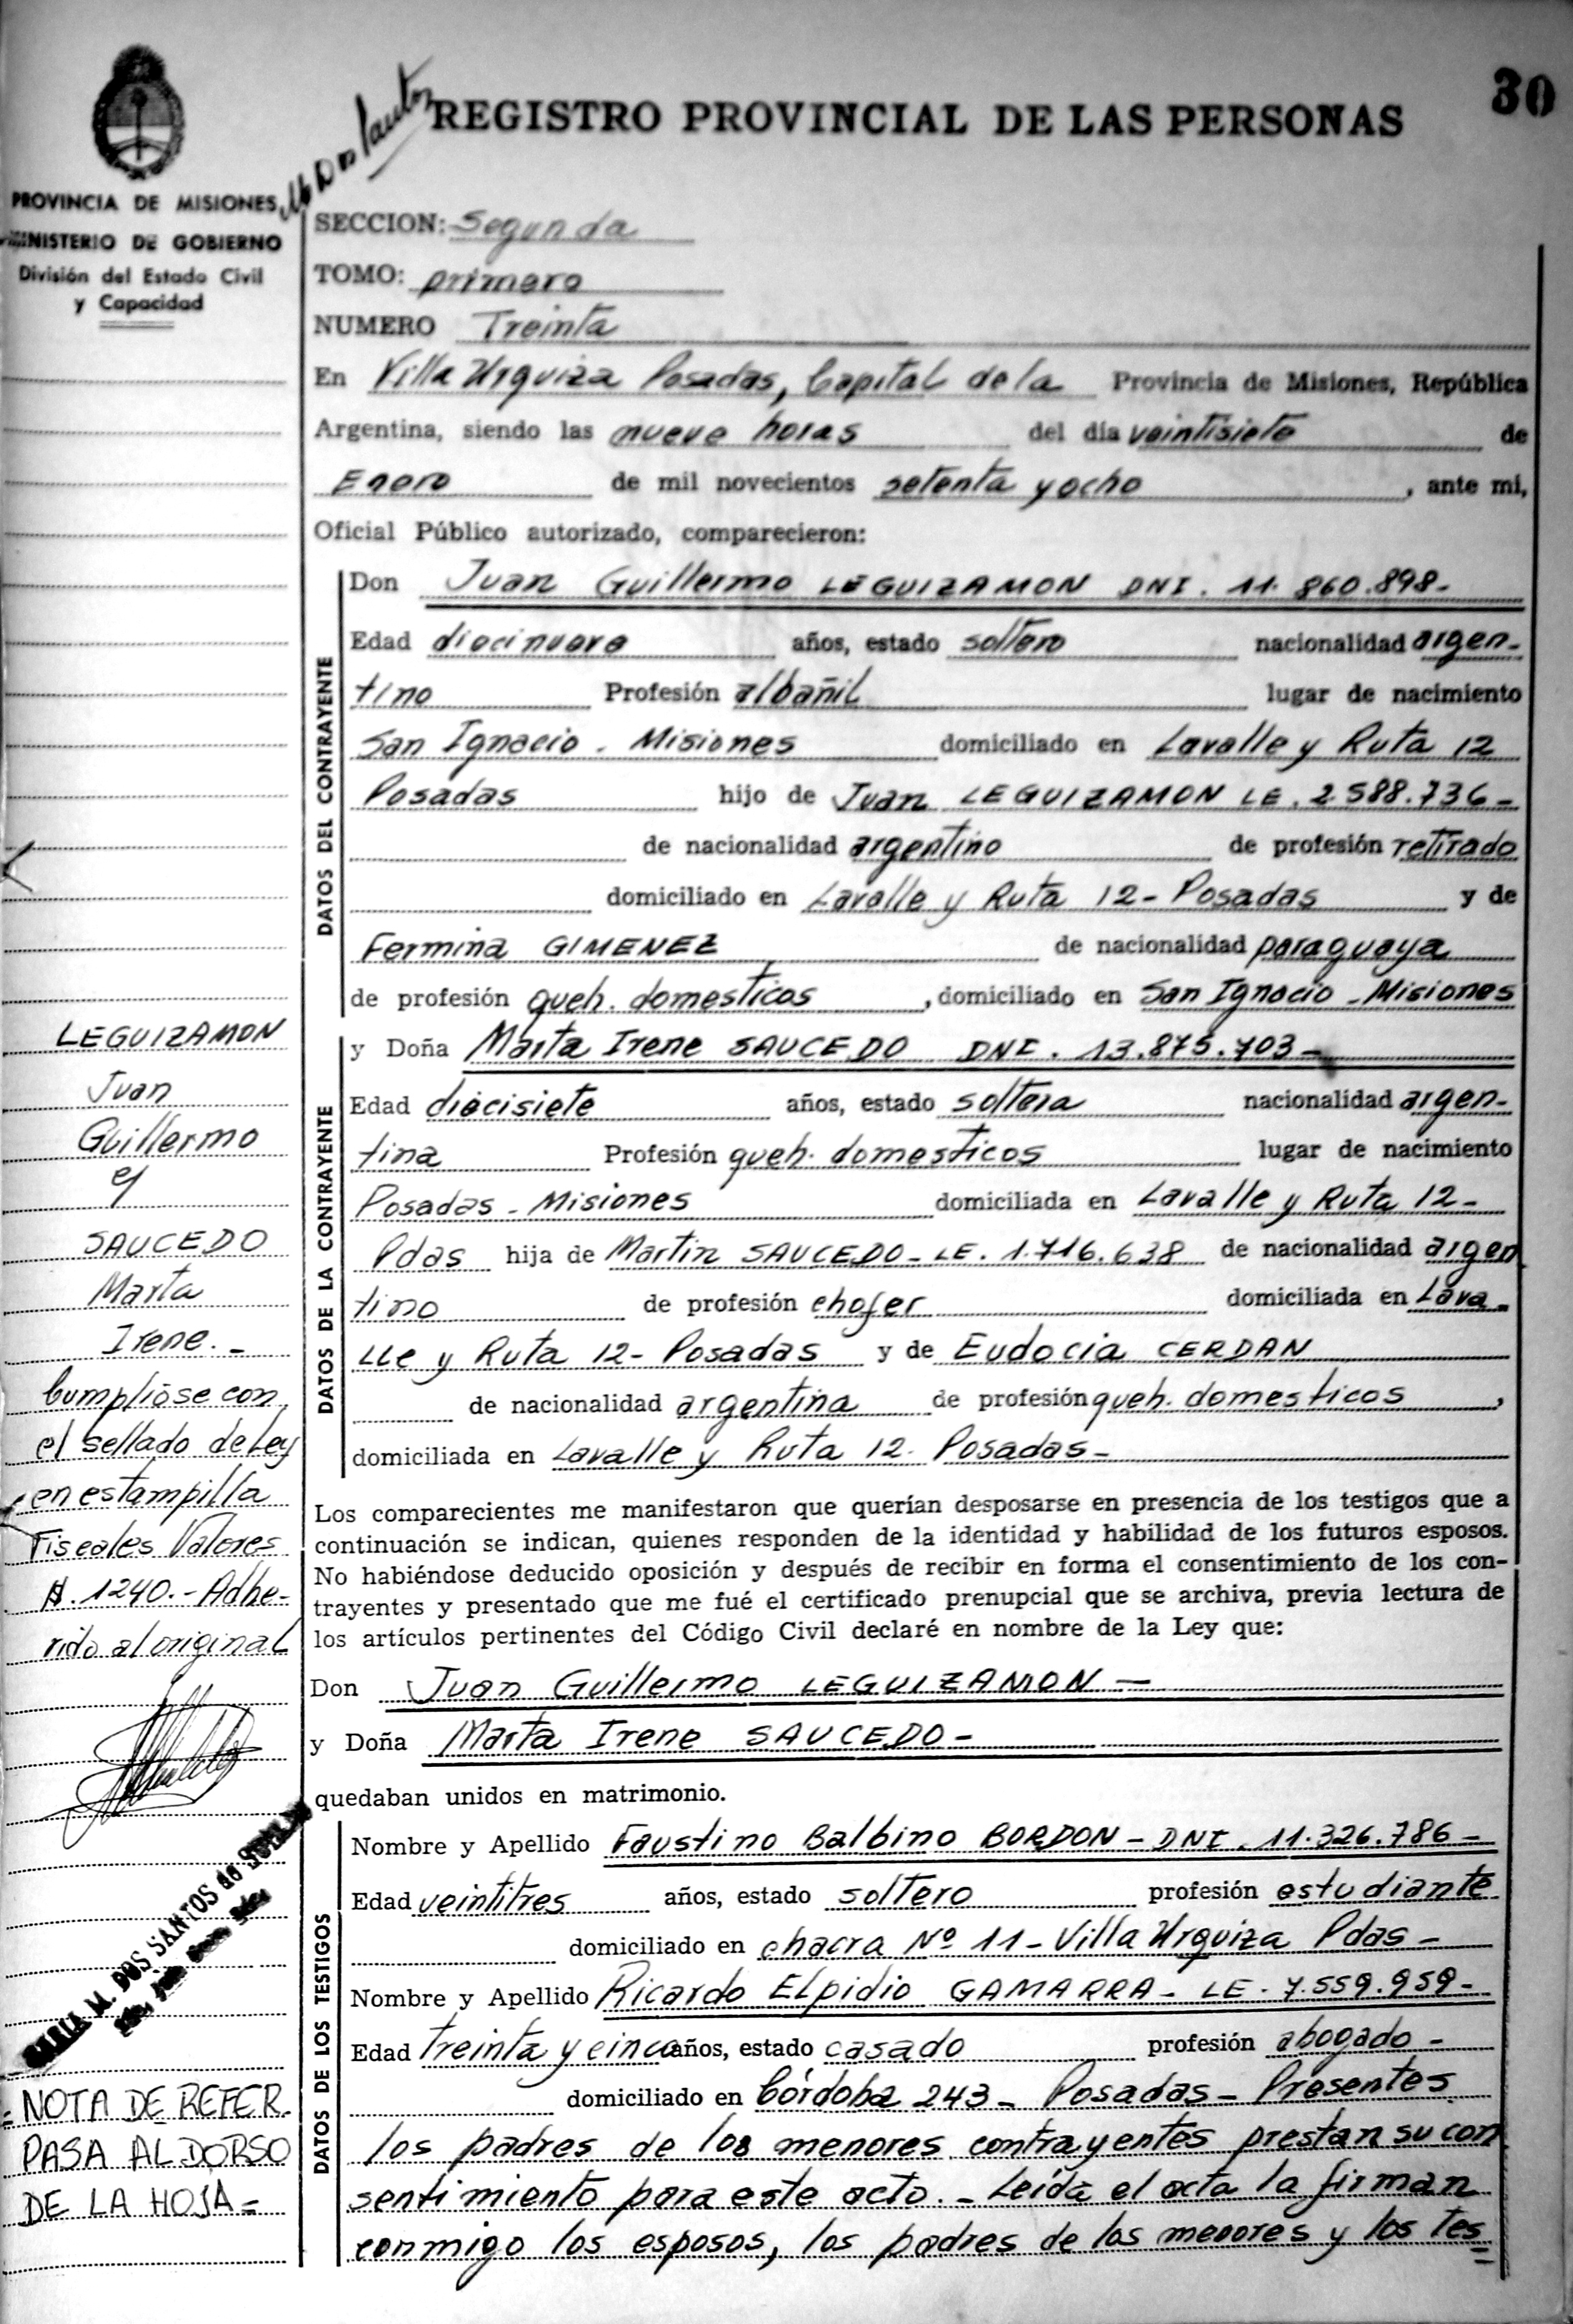 30
REGISTRO PROVINCIAL DE LAS PERSONAS
PROVINCIA DE MISIONES
MINISTERIO DE GOBIERNO
División del Estado Civil
y Capacidad
SECCION: Segunda
TOMO: primero
NUMERO Treinta
En Villa Urquiza Posadas, Capital de la Provincia de Misiones, República
Argentina, siendo las nueve horas del día veintisiete de
Enero de mil novecientos setenta y ocho, ante mi,
Oficial Público autorizado, comparecieron:
DATOS DEL CONTRAYENTE
Don Juan Guillermo LEGUIZAMON DNI. 11.860.898-
Edad diecinueve años, estado soltero nacionalidad argen-
tino Profesión albañil lugar de nacimiento
San Ignacio - Misiones domiciliado en Lavalle y Ruta 12
Posadas hijo de Juan LEGUIZAMON LE. 2.588.736-
de nacionalidad argentino de profesión retirado
domiciliado en Lavalle y Ruta 12- Posadas y de
Fermina GIMENEZ de nacionalidad paraguaya
de profesión queh. domesticos, domiciliado en San Ignacio - Misiones
DATOS DE LA CONTRAYENTE
y Doña Marta Irene SAUCEDO DNI. 13.875.703-
Edad diecisiete años, estado soltera nacionalidad argen-
tina Profesión queh. domesticos lugar de nacimiento
Posadas - Misiones domiciliada en Lavalle y Ruta 12-
Pdas hija de Martin SAUCEDO- LE. 1.716.638 de nacionalidad argen
tino de profesión chofer domiciliada en Lava-
lle y Ruta 12- Posadas y de Eudocia CERDAN
de nacionalidad argentina de profesión queh. domesticos,
domiciliada en Lavalle y Ruta 12. Posadas-
Los comparecientes me manifestaron que querían desposarse en presencia de los testigos que a
continuación se indican, quienes responden de la identidad y habilidad de los futuros esposos.
No habiéndose deducido oposición y después de recibir en forma el consentimiento de los con-
trayentes y presentado que me fué el certificado prenupcial que se archiva, previa lectura de
los artículos pertinentes del Código Civil declaré en nombre de la Ley que:
Don Juan Guillermo LEGUIZAMON -
y Doña Marta Irene SAUCEDO -
quedaban unidos en matrimonio.
DATOS DE LOS TESTIGOS
Nombre y Apellido Faustino Balbino BORDON - DNI. 11.326.786-
Edad veintitres años, estado soltero profesión estudiante
domiciliado en chacra Nº 11- Villa Urquiza Pdas-
Nombre y Apellido Ricardo Elpidio GAMARRA- LE. 7.559.959-
Edad treinta y cinco años, estado casado profesión abogado-
domiciliado en Córdoba 243- Posadas- Presentes
los padres de los menores contrayentes prestan su con
sentimiento para este acto.- Leída el acta la firman
conmigo los esposos, los padres de los menores y los tes
LEGUIZAMON
Juan
Guillermo
y
SAUCEDO
Marta
Irene.-
Cumplióse con
el sellado de Ley
en estampilla
Fiscales Valores
$.1240.- Adhe-
rido al original
M. DOS SANTOS de
NOTA DE REFER.
PASA AL DORSO
DE LA HOJA=